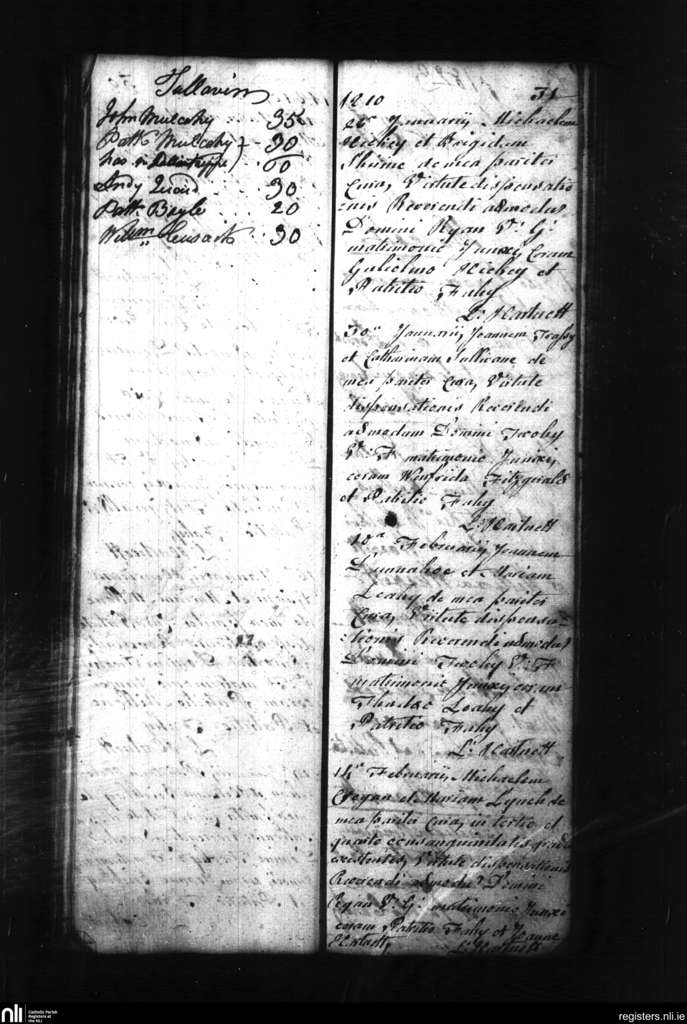 Tullavin
John Mulcahy 35
Patk Mulcahy 30
60
Andy Quaid 30
Patk Bayle 20
Willm Cusack 30
31
1210
26a Januarij, Michaelem
Hickey et Brigidam
Shinne de mea pariter
Cura, Virtute dispensatio
onis Reverendi admodum
Domini Ryan V: G:
matrimonio Junxi, Coram
Gulielmo Hickey et
Patritio Fahy
L: Hartnett
30a Januarij, Joannem
et Catharinam Sullivane de
mea pariter Cura, Virtute
dispensationis Reverendi
admodum Domini Twohy
V: F matrimonio Junxi,
coram Winfrida Fitzgerald
et Patritio Fahy
L: Hartnett
10a Februarij, Joannem
Dunnahoe et Mariam
Leahy de mea pariter
Cura, Virtute dispensa-
tionis Reverendi admodum
Domini Twohy V: F
matrimonio Junxi coram
Thadeo Leahy et
Patritio Fahy
L: Hartnett
14a Februarij, Michaelem
Regan et Mariam Lynch de
mea pariter Cura, in tertio et
quarto consanguinitatis gradu
existentes, Virtute dispensationis
Reverendi admodum Domini
Ryan V: G: matrimonio Junxi
coram Patritio Fahy et Joanne
L: Hartnett
nli
Catholic Parish
Registers at
the NLI
registers.nli.ie